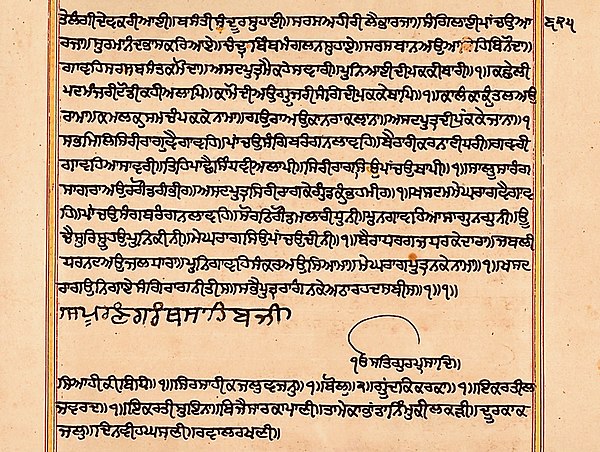 ਤੇਲੰਗੀਦੇਵਕਰੀਆਈ॥ਬਸੰਤੀਸੰਦੂਰਸੁਹਾਈ॥ਸਰਸਅਹੀਰੀਲੈਭਾਰਜਾ॥ਸੰਗਿਲਾਈਪਾਂਚਉਆ ੬੨੫
ਰਜਾ॥ਸੁਰਮਾਨੰਦਭਾਸਕਰਿਆਏ॥ਚੰਦ੍ਰਬਿੰਬਮੰਗਲਨਸੁਹਾਏ॥ਸਰਸਬਾਨਅਉਆਹਿਬਿਨੋਦਾ॥
ਗਾਵਹਿਸਰਸਬਸੰਤਕਮੋਦਾ॥ਅਸਟਪੁਤ੍ਰਮੈਕਹੇਸਵਾਰੀ॥ਪੁਨਿਆਈਦੀਪਕਕੀਬਾਰੀ॥੧॥ਕਛੇਲੀ
ਪਟਮੰਜਰੀਟੋਡੀਕਹੀਅਲਾਪਿ॥ਕਾਮੋਦੀਅਉਗੂਜਰੀਸੰਗਿਦੀਪਕਕੇਥਾਪਿ॥੧॥ਕਾਲੰਕਾਕੁੰਤਲਅਉ
ਰਾਮਾ॥ਕਮਲਕੁਸਮਚੰਪਕਕੇਨਾਮਾ॥ਗਉਰਾਅਉਕਾਨਰਾਕਲ੍ਯਾਨਾ॥ਅਸਟਪੁਤ੍ਰਦੀਪਕਕੇਜਾਨਾ॥੧॥
ਸਭਮਿਲਿਸਿਰੀਰਾਗੁਵੈਗਾਵਹਿ॥ਪਾਂਚਉਸੰਗਿਬਰੰਗਨਲਾਵਹਿ॥ਬੈਰਾੜੀਕਰਨਾਟੀਧਰੀ॥ਗਵਰੀ
ਗਾਵਹਿਆਸਾਵਰੀ॥ਤਿਹਿਪਾਛੈਸਿੰਧਵੀਅਲਾਪੀ॥ਸਿਰੀਰਾਗਸਿਉਪਾਂਚਉਥਾਪੀ॥੧॥ਸਾਲੂਸਾਰੰਗ
ਸਾਗਰਾਅਉਰਗੋਂਡਗੰਭੀਰ॥ਅਸਟਪੁਤ੍ਰਸਿਰੀਰਾਗਕੇਗੁੰਡਕੁੰਭਹਮੀਰ॥੧॥ਖਸਟਮਮੇਘਰਾਗਵੈਗਾਵ
ਹਿ॥ਪਾਂਚਉਸੰਗਬਰੰਗਨਲਾਵਹਿ॥ਸੋਰਠਿਗੋਂਡਮਲਾਰੀਧੁਨੀ॥ਪੁਨਗਾਵਹਿਆਸਾਗੁਨਗੁਨੀ॥ਊ
ਚੈਸੁਰਿਸੂਹਉਪੁਨਿਕੀਨੀ॥ਮੇਘਰਾਗਸਿਉਪਾਂਚਉਚੀਨੀ॥੧॥ਬੈਰਾਧਰਗਜਧਰਕੇਦਾਰਾ॥ਜਬਲੀ
ਧਰਨਟਅਉਜਲਧਾਰਾ॥ਪੁਨਿਗਾਵਹਿਸੰਕਰਅਉਸਿਆਮਾ॥ਮੇਘਰਾਗਪੁਤ੍ਰਨਕੇਨਾਮਾ॥੧॥ਖਸਟ
ਰਾਗਉਨਿਗਾਏਸੰਗਿਰਾਗਨੀਤੀਸ॥ਸਭੈਪੁਤ੍ਰਰਾਗੰਨਕੇਅਠਾਰਹਦਸਬੀਸ॥੧॥੧॥
ਸਪੂਰਣੰਗਰੰਥਸਾਹਿਬਜੀ
ੴਸਤਿਗੁਰਪ੍ਰਸਾਦਿ॥
ਸਿਆਹੀਕੀਬਿਧਿ॥੧॥ਸਿਰਸਾਹੀਕਾਜਲੁਵਜਨੁ॥੧॥ਬੋਲੁ॥੨॥ਗੂੰਦਕਿਕਰਕਾ॥੧॥ਇਕਰਤੀਲ
ਾਜਵਰਦ॥੧॥ਇਕਰਤੀਸੁਇਨਾ॥ਬਿਜੈਸਾਰਕਾਪਾਣੀ॥ਤਾਮੇਕਾਭਾਂਡਾਨਿੰਮੁਕੀਲਕੜੀ॥ਦੂਰਕਾਕਾ
ਜਲੁ॥ਦਿਨਵੀਹਘਸਣੀ॥ਰਵਾਲਰਖਣੀ॥